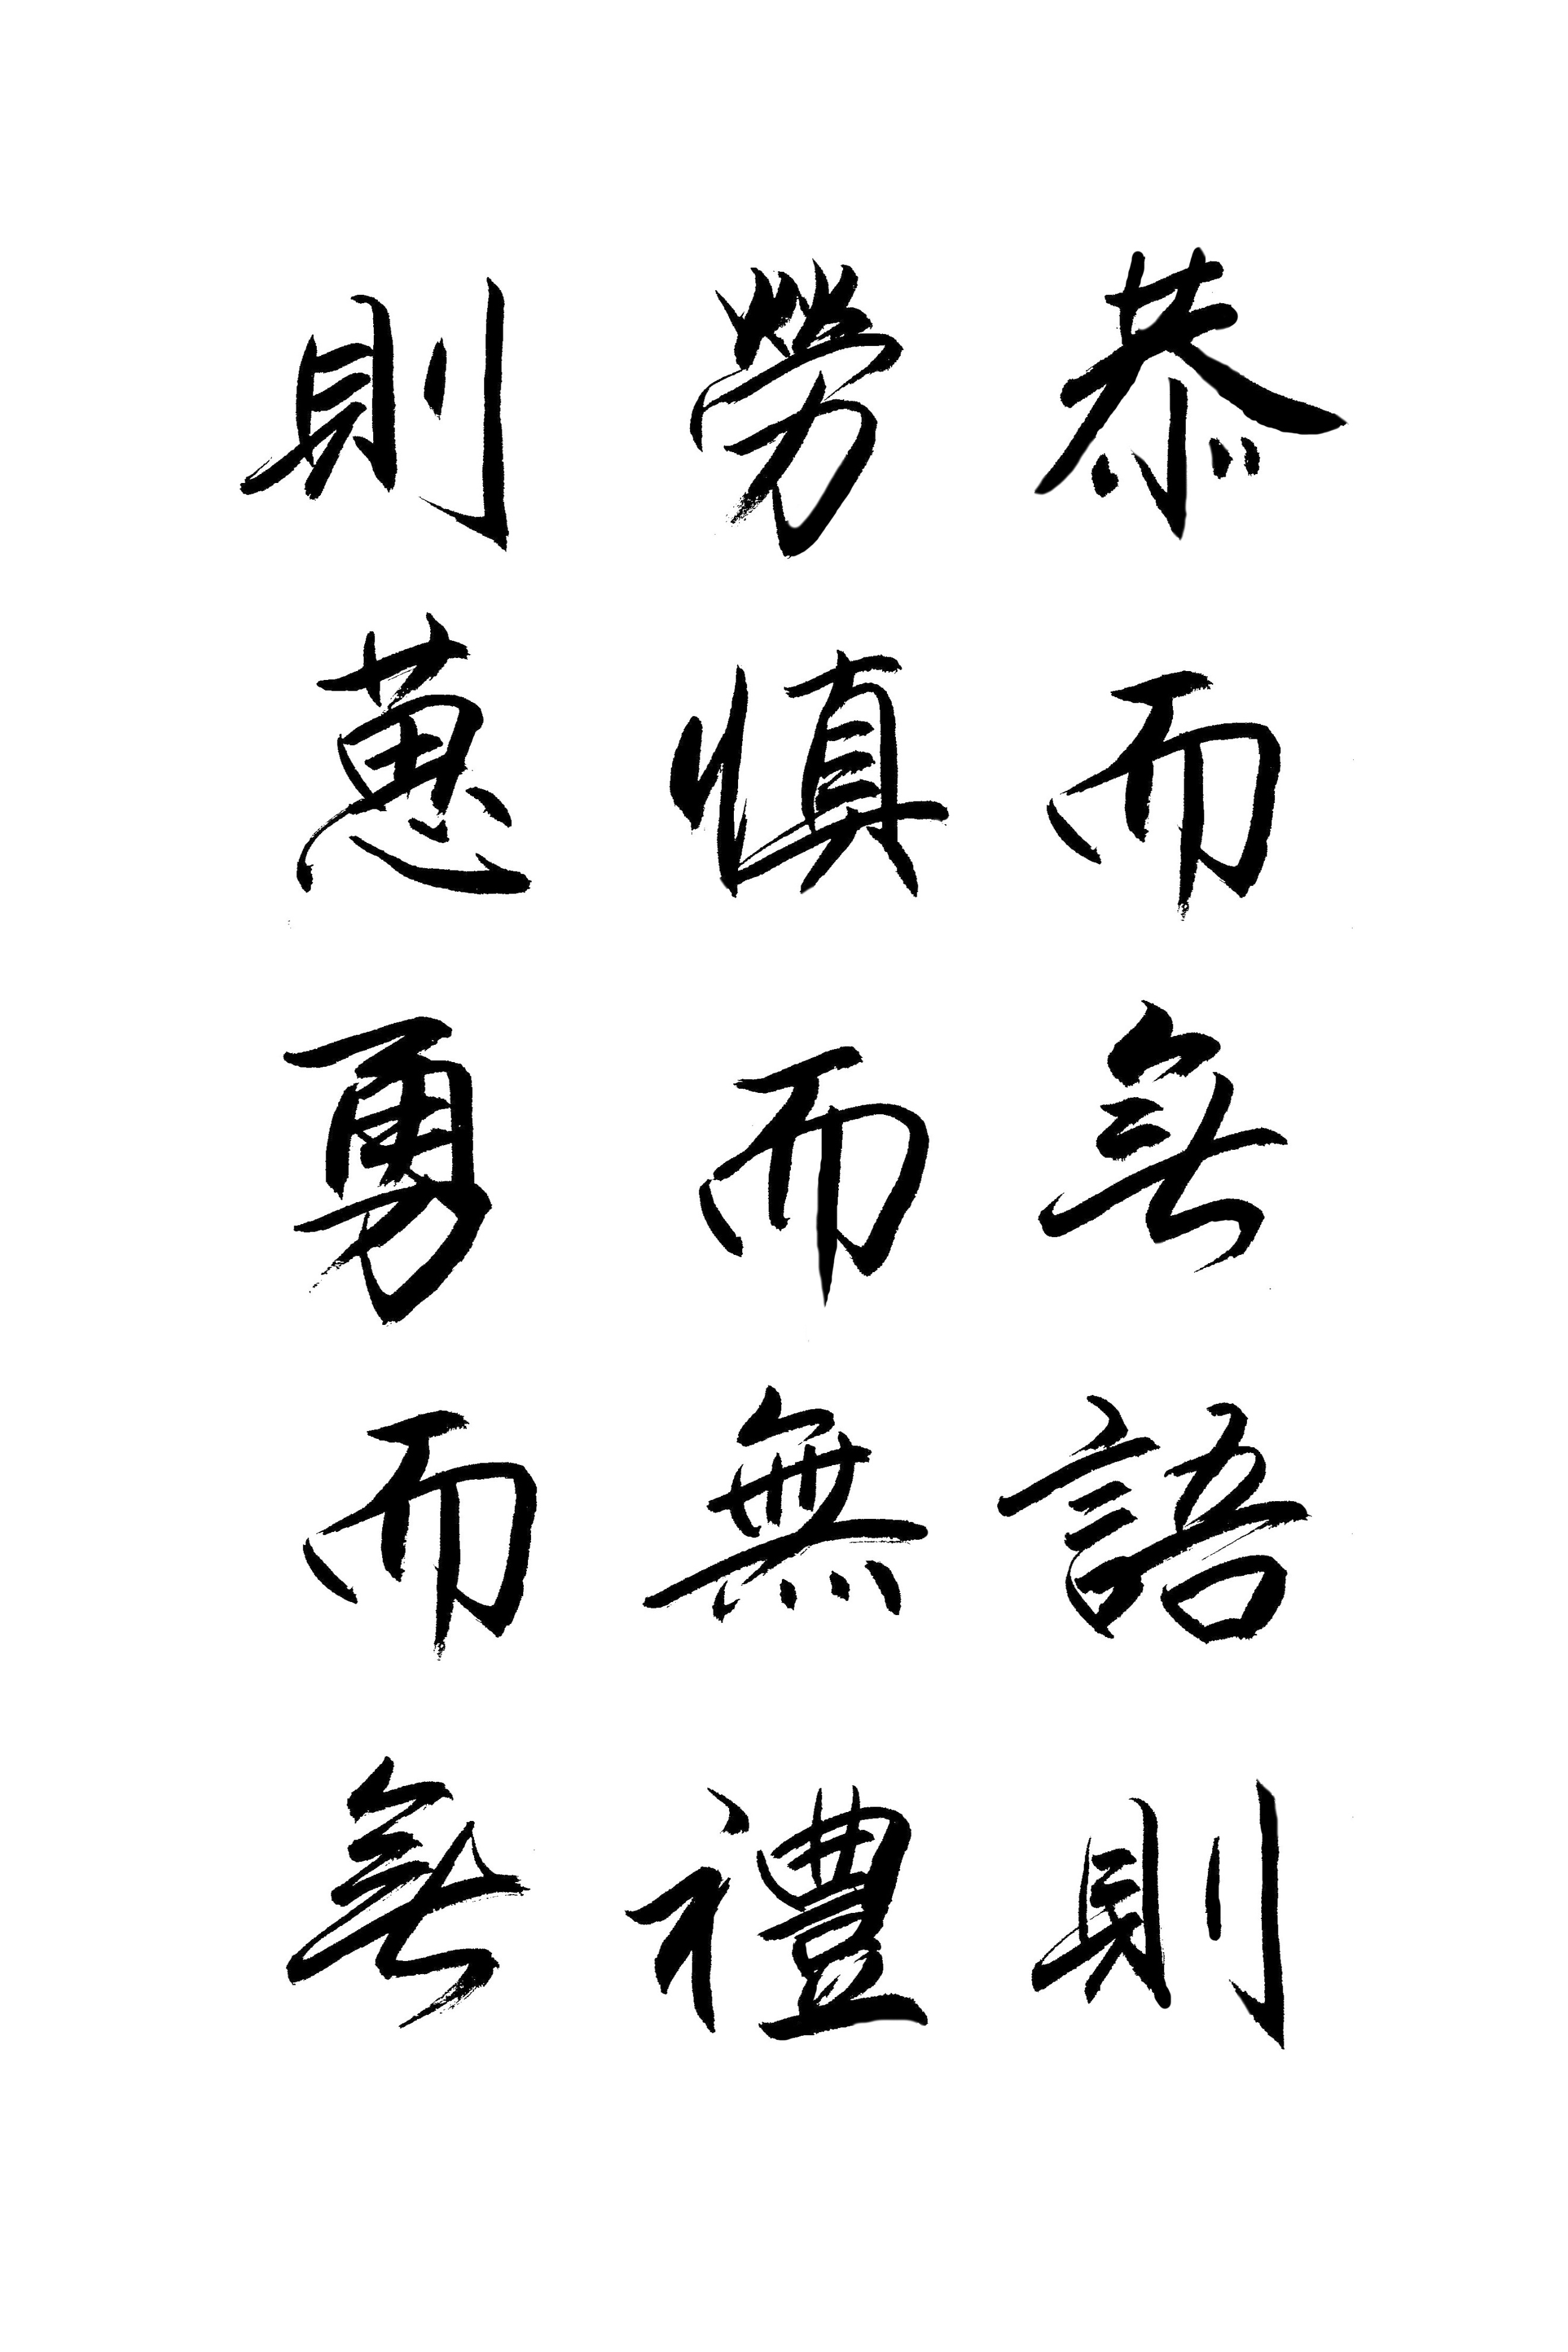 恭而無語則
勞慎而無禮
則葸勇而無